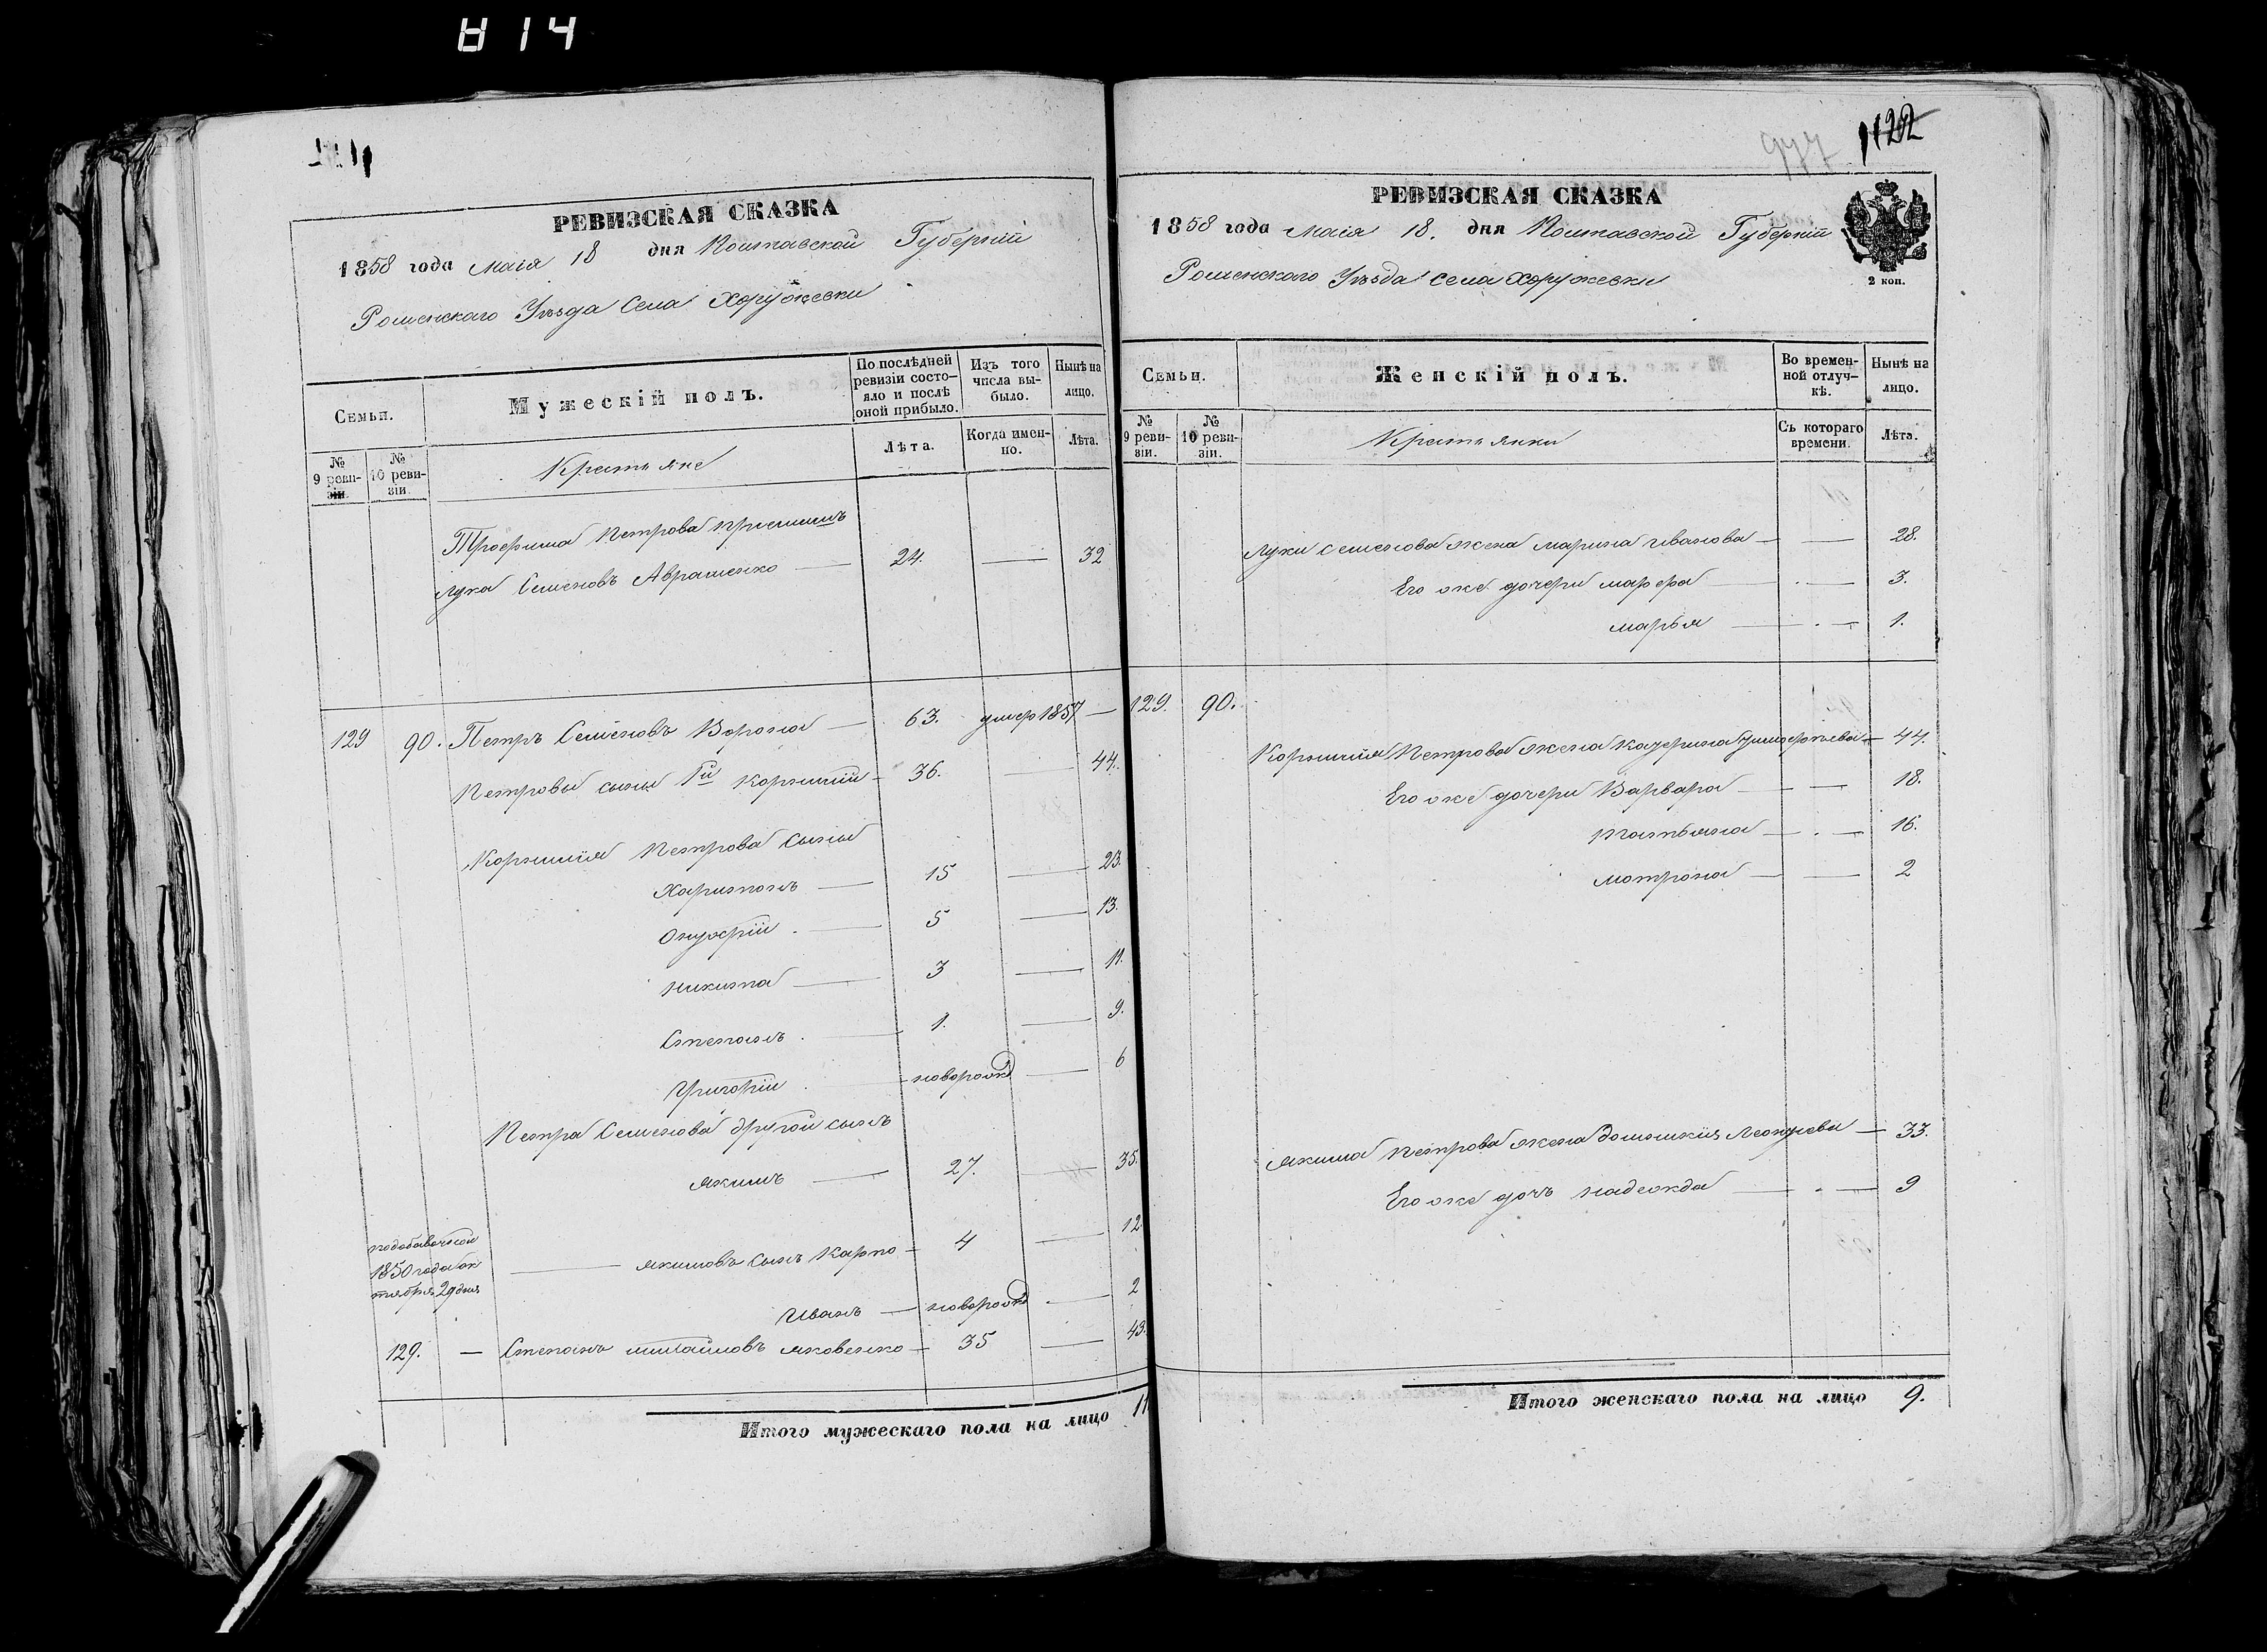 814
РЕВИЗСКАЯ СКАЗКА
1858 года Маія 18 дня Полтавской Губерніи
Роменскаго Уѣзда Села Хоружевки
Семьи.
Мужескій полъ.
По послѣдней ревизіи состояло и послѣ оной прибыло.
Изъ того числа выбыло.
Нынѣ на лицо.
№ 9 ревизіи.
№ 10 ревизіи.
Крестьяне
Лѣта.
Когда именно.
Лѣта.
Трофима Петрова пріемышъ
Лука Семеновъ Авраменко — 24. — 32
129 90. Петръ Семеновъ Ворона — 63. умер 1857 —
Петровы сыны 1й Корнилій — 36. — 44.
Корнилія Петрова сыны
Харитонъ — 15 — 23.
Онуфрій — 5 — 13.
Никита — 3 — 11.
Степанъ — 1. — 9.
Григорій — новорожд — 6
Петра Семенова другой сынъ
Якимъ — 27. — 35.
подобавочной
1850 года ок
тября 29 дня
Якимовъ сынъ Карпо — 4 — 12
Иванъ — новорожд — 2
129. — Степанъ Михайловъ Яковенко — 35 — 43.
Итого мужескаго пола на лицо 11
977 1122
РЕВИЗСКАЯ СКАЗКА
1858 года Маія 18. дня Полтавской Губерніи
Роменскаго Уѣзда Села Хоружевки
2 коп.
Семьи.
Женскій полъ.
Во временной отлучкѣ.
Нынѣ на лицо.
№ 9 ревизіи.
№ 10 ревизіи.
Крестьянки
Съ котораго времени.
Лѣта.
Луки Семенова жена Марина Иванова — — 28.
Его же дочери Марфа — — 3.
Марья — — 1.
129. 90.
Корнилія Петрова жена Катерина — 44.
Его же дочери Варвара — — 18.
Татьяна — — 16.
Матрона — — 2
Якима Петрова жена Домникія Леонтьева — 33.
Его же дочь Надежда — — 9
Итого женскаго пола на лицо 9.